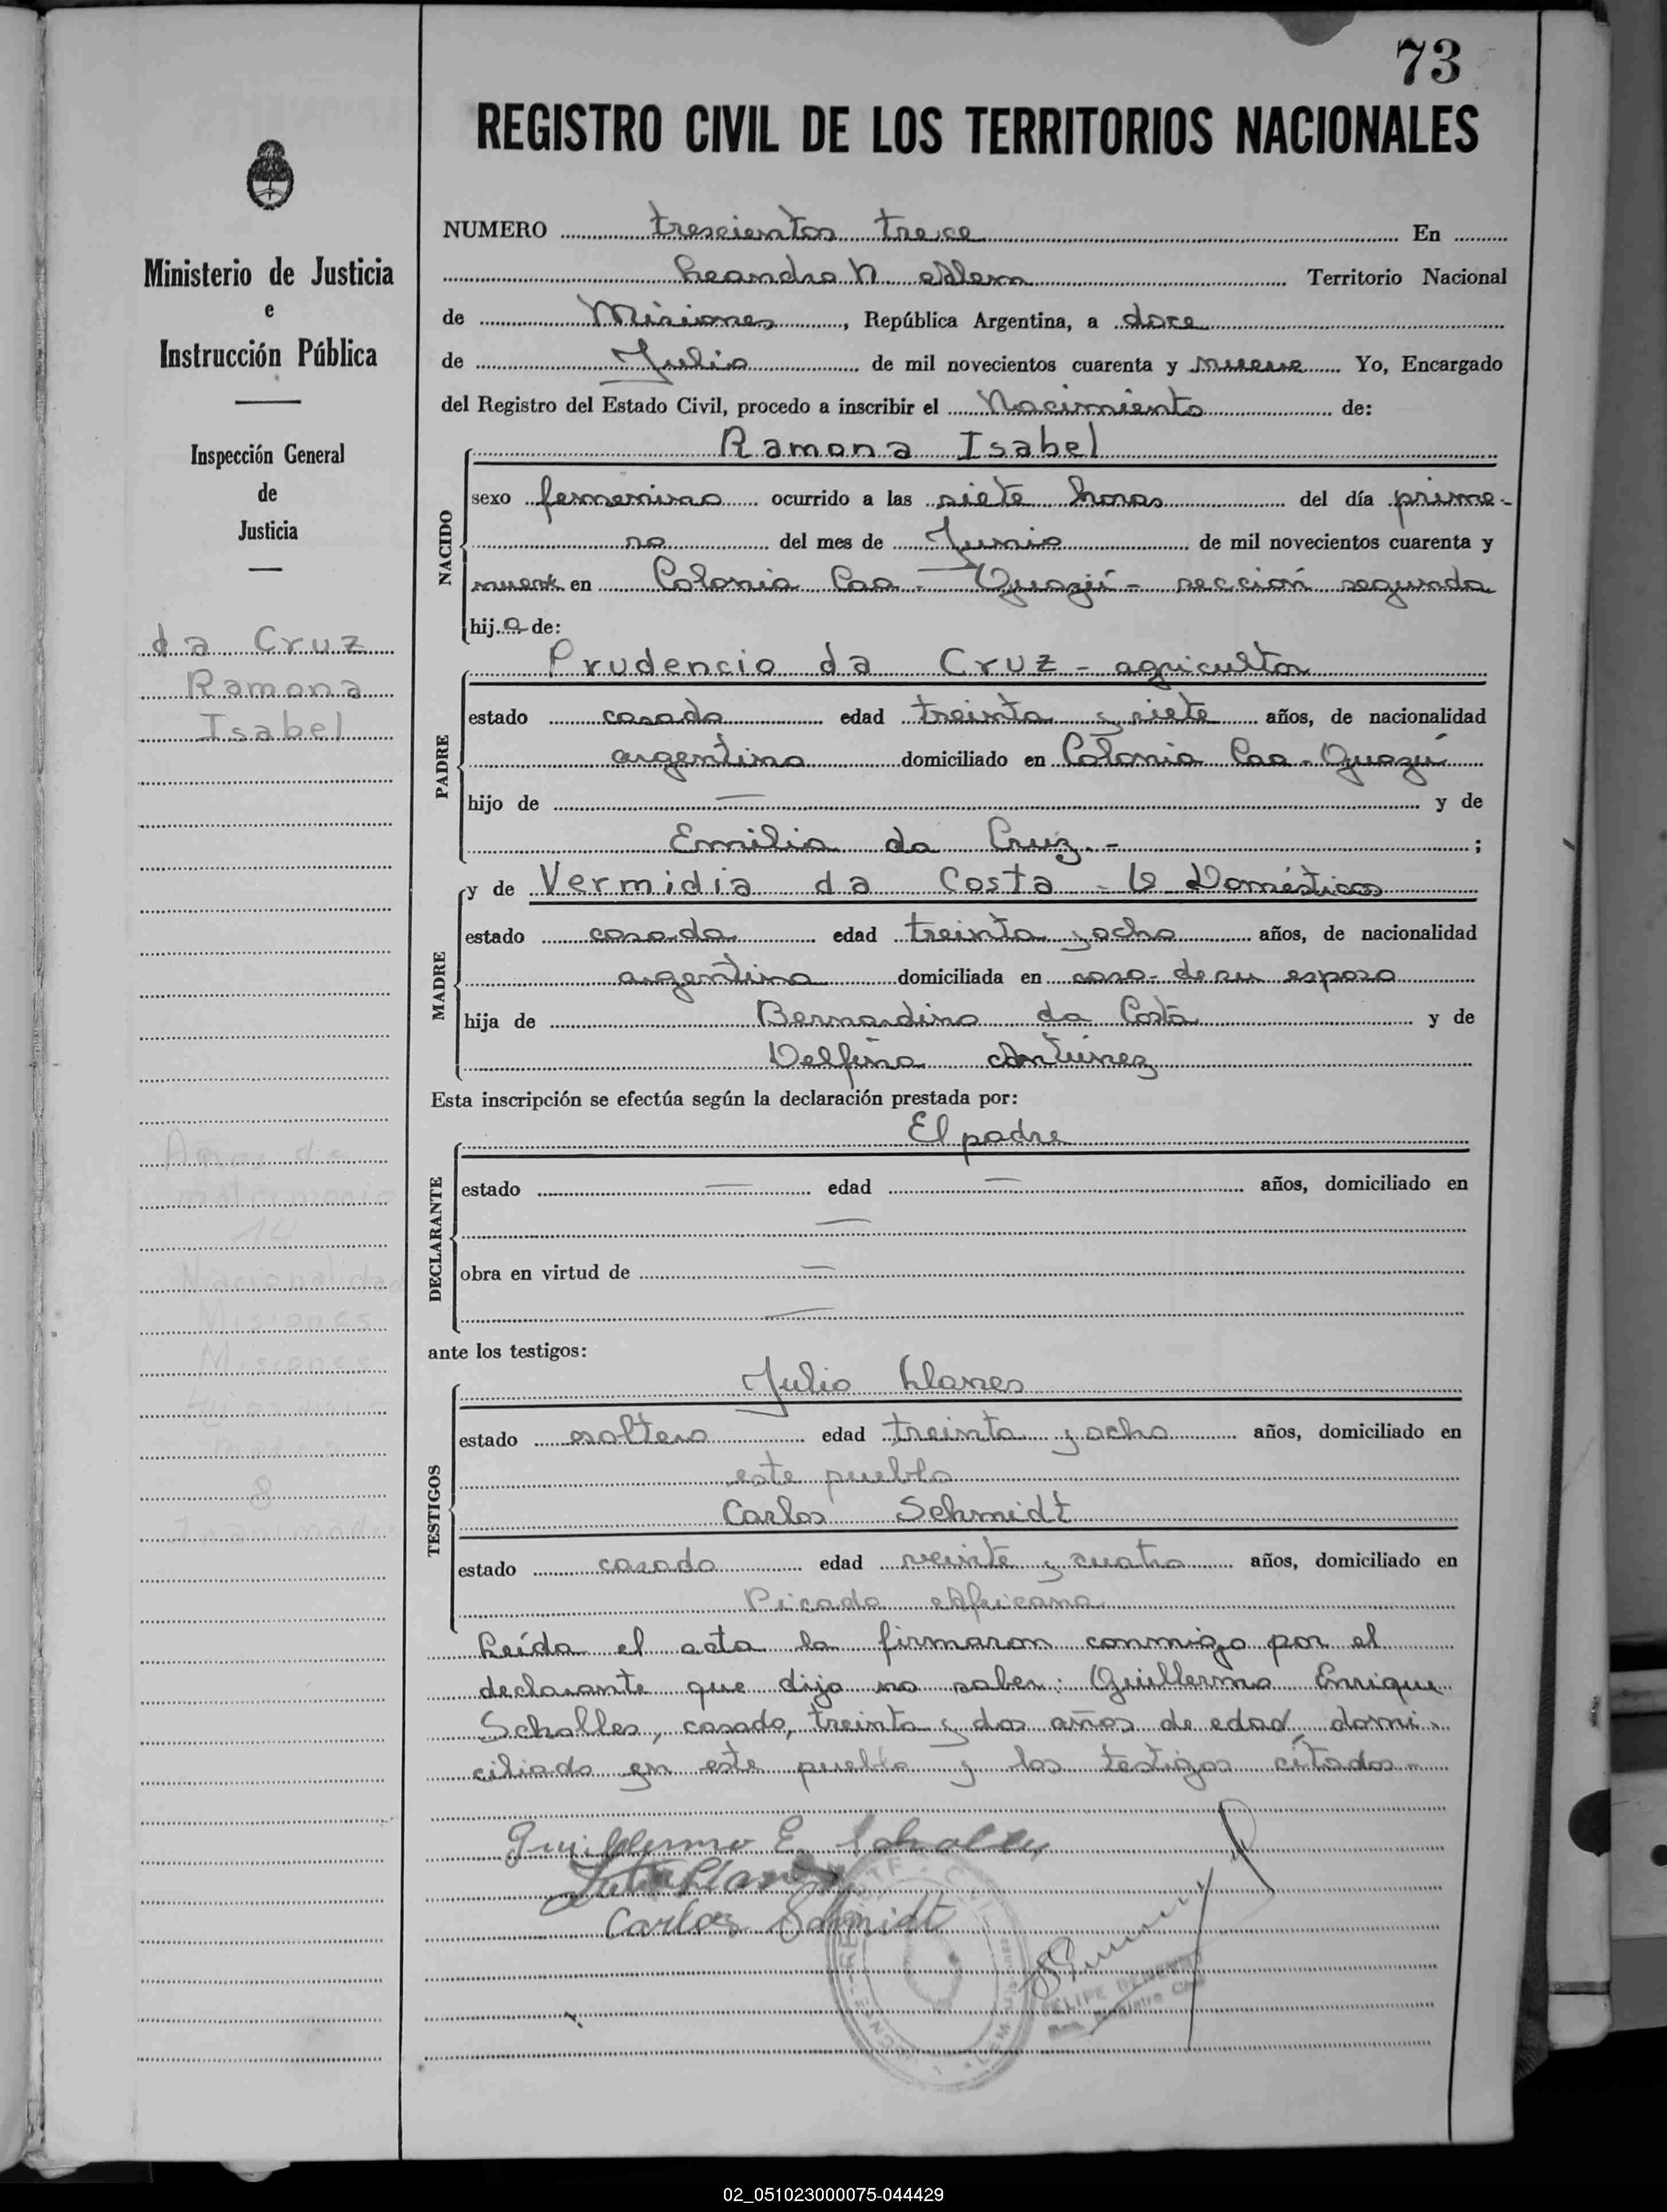 73
REGISTRO CIVIL DE LOS TERRITORIOS NACIONALES
Ministerio de Justicia
e
Instrucción Pública
Inspección General
de
Justicia
da Cruz
Ramona
Isabel
Años de
matrimonio
14
Nacionalidad
Misiones
Misiones
8
NUMERO trescientos trece En
Leandro N. Alem Territorio Nacional
de Misiones, República Argentina, a doce
de Julio de mil novecientos cuarenta y nueve Yo, Encargado
del Registro del Estado Civil, procedo a inscribir el Nacimiento de:
NACIDO
Ramona Isabel
sexo femenino ocurrido a las siete horas del día prime-
ro del mes de Junio de mil novecientos cuarenta y
nueve en Colonia Caa-Guazú - sección segunda
hija de:
PADRE
Prudencio da Cruz - agricultor
estado casado edad treinta y siete años, de nacionalidad
argentino domiciliado en Colonia Caa-Guazú
hijo de — y de
Emilia da Cruz.- ;
MADRE
y de Vermidia da Costa - Q. Domésticos
estado casada edad treinta y ocho años, de nacionalidad
argentina domiciliada en casa de su esposo
hija de Bernardino da Costa y de
Delfina Antúnez
Esta inscripción se efectúa según la declaración prestada por:
DECLARANTE
El padre
estado — edad — años, domiciliado en
—
obra en virtud de —
—
ante los testigos:
TESTIGOS
Julio Llanes
estado soltero edad treinta y ocho años, domiciliado en
este pueblo
Carlos Schmidt
estado casado edad veinte y cuatro años, domiciliado en
Picada Africana
Leída el acta la firmaron conmigo por el
declarante que dijo no saber: Guillermo Enrique
Schalles, casado, treinta y dos años de edad, domi-
ciliado en este pueblo y los testigos citados.-
Guillermo E. Schalles
Julio Llanes
Carlos Schmidt
FELIPE
02_051023000075-044429